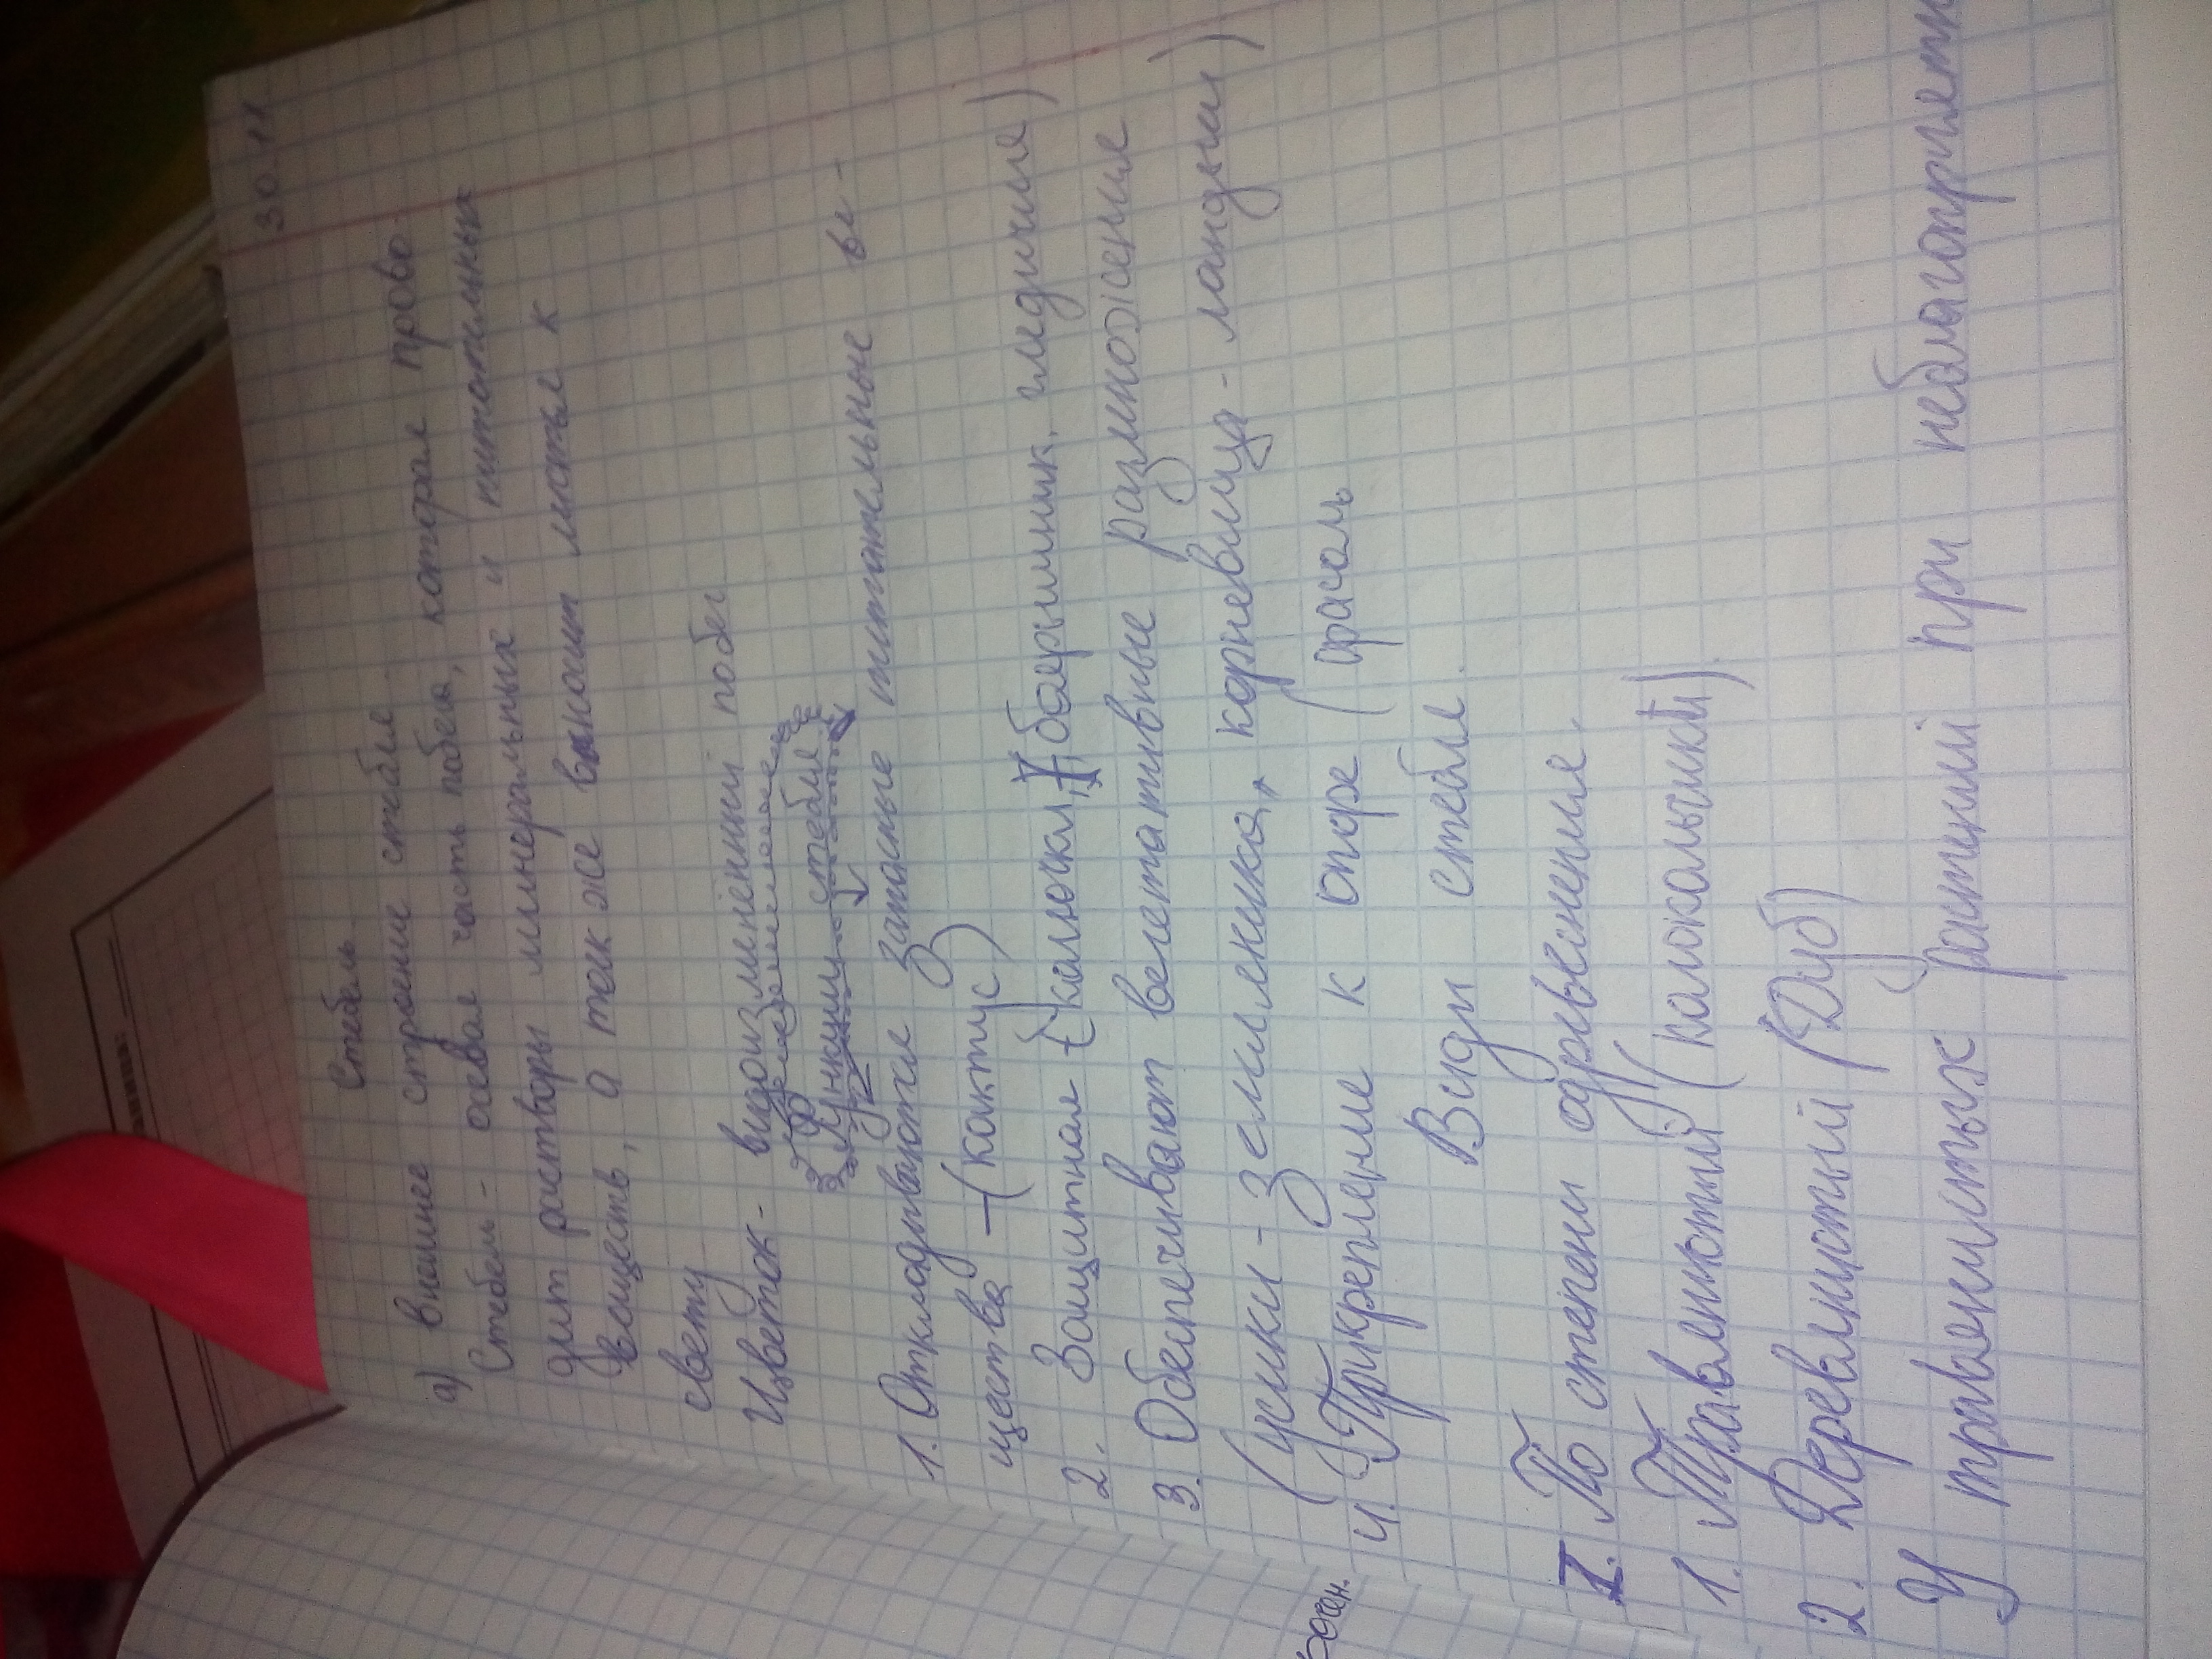 30.11
Стебель.
а) внешнее строение стебля.
Стебель - осевая часть побега, которая прово-
дит растворы минеральных и питательных
веществ, а так же выносит листья к
свету
Цветок - видоизмененный побег
Функции стебля:
1. Откладываются запасные питательные ве-
щества (кактус)
2. Защитная (колючки боярышник, гледичия)
3. Обеспечивают вегетативные размножение
(усики - земленика, корневища - ландыш)
4. Прикрепление к опоре (фасоль
Виды стебля.
I. По степени одревеснения
1. Травянистый (колокольчики).
2. Деревянистый (Дуб)
У травянистых растений при неблагоприятн